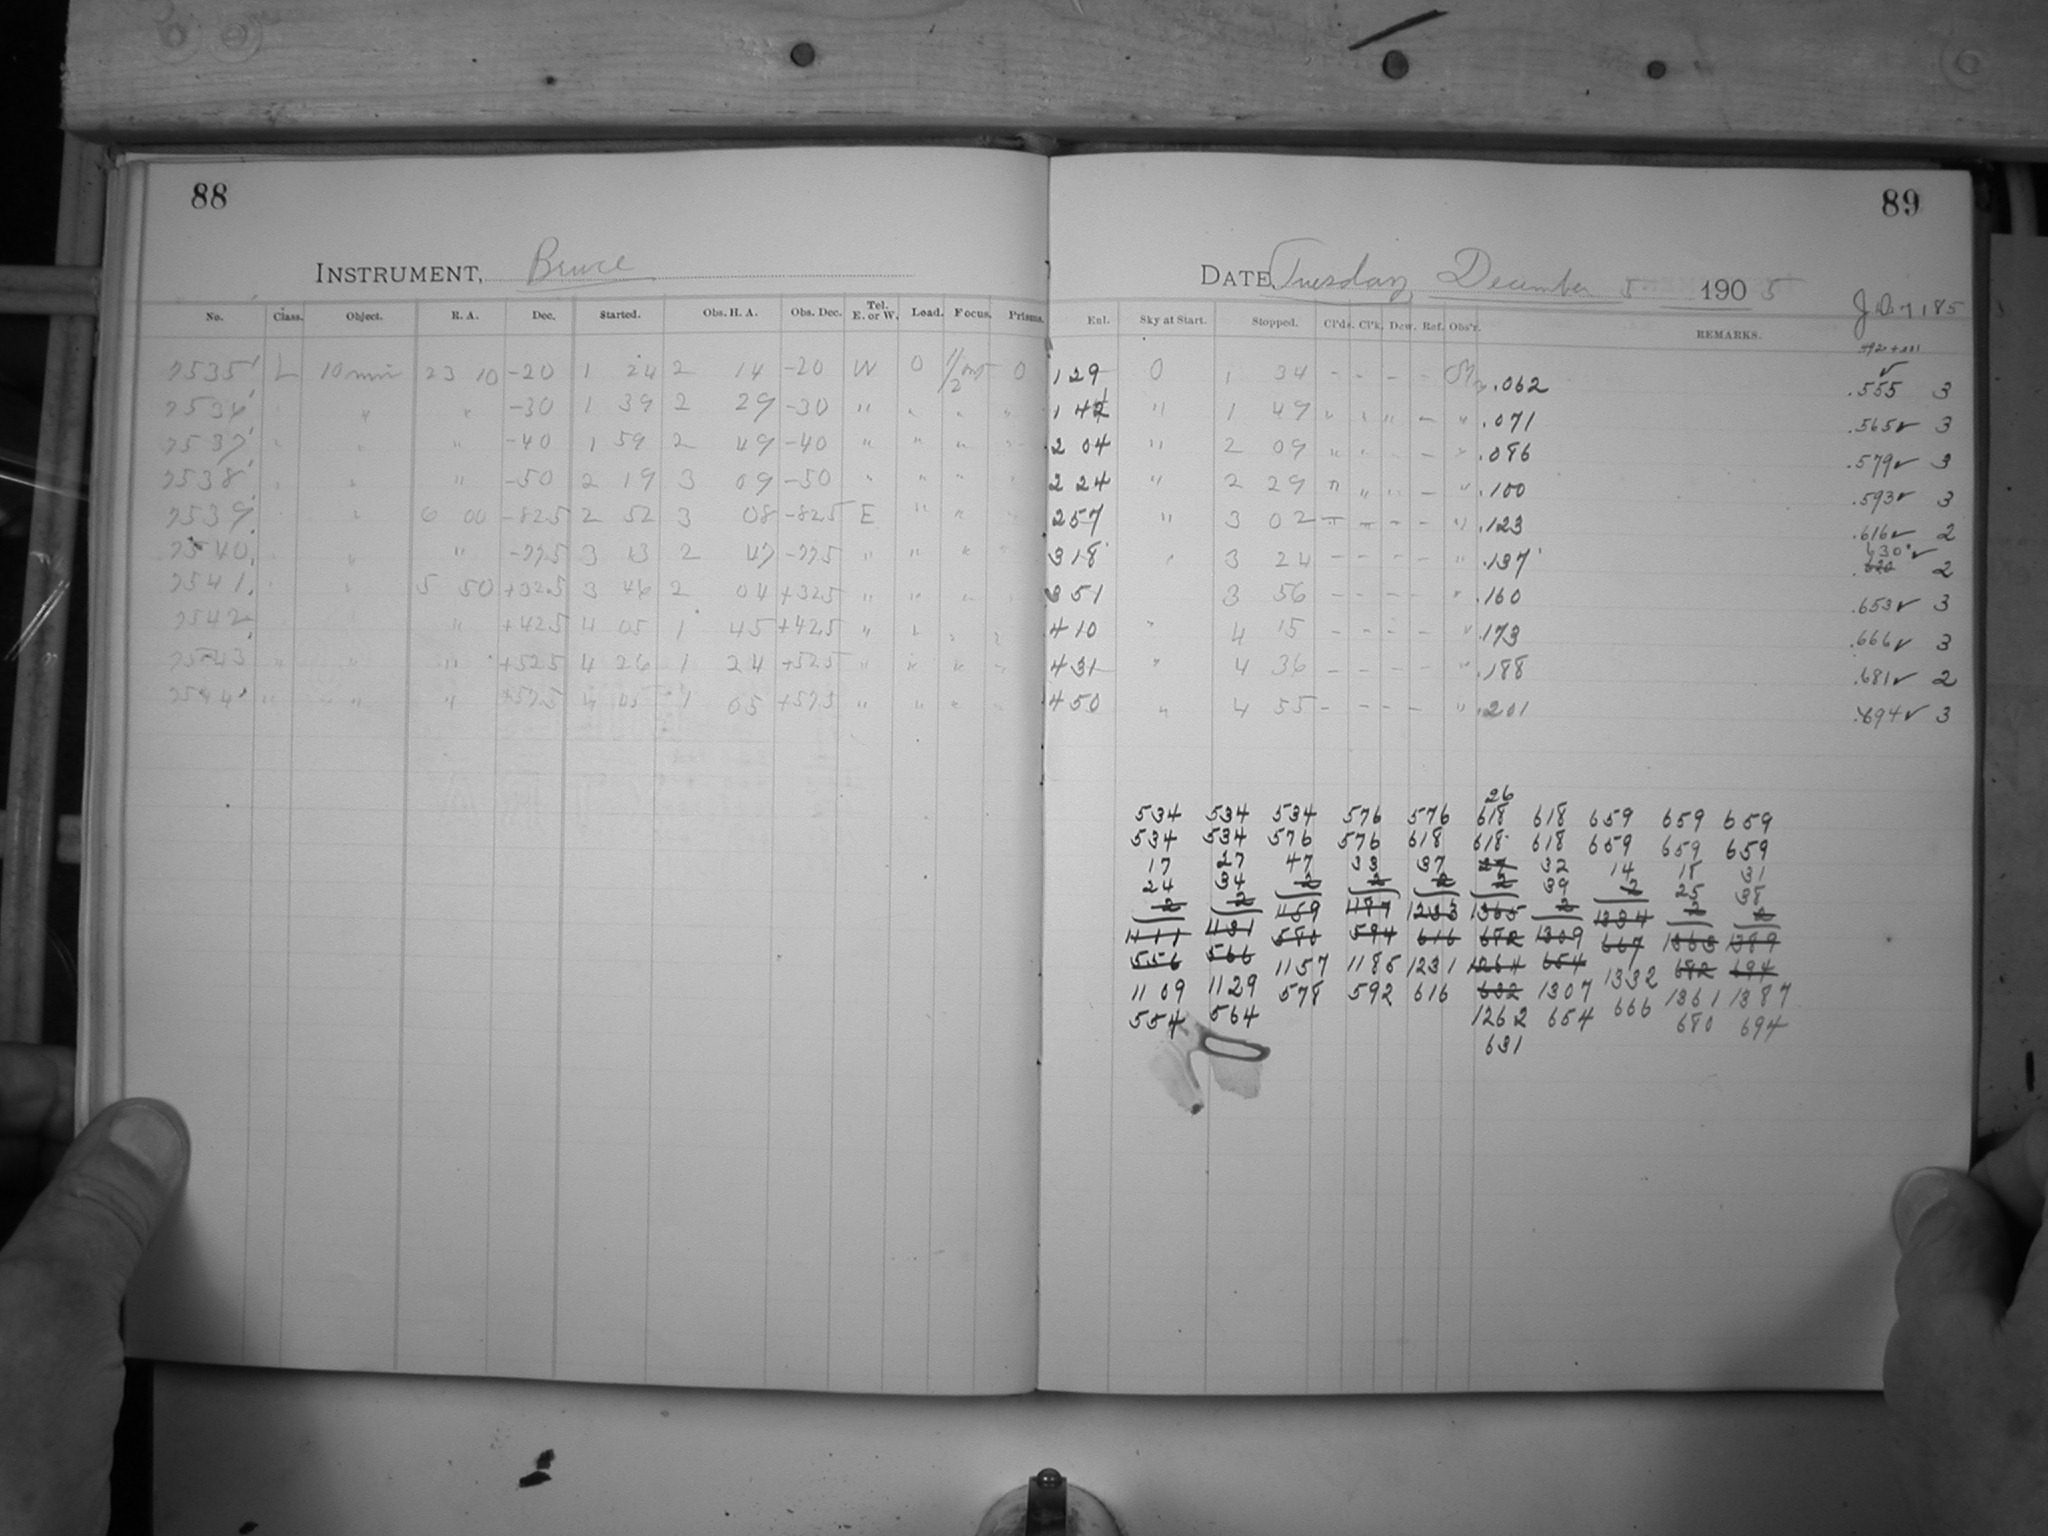 88
INSTRUMENT, Bruce
No. Class. Object. R. A. Dec. Started. Obs. H. A. Obs. Dec. Tel. E. or W. Load. Focus. Prisms.
7535 L 10 min 23 10 -20 1 24 2 14 -20 W 0 0
7536 " " -30 1 39 2 29 -30 " " " "
7537 " " -40 1 59 2 49 -40 " " " "
7538 " " -50 2 19 3 09 -50 " " " "
7539 " 6 00 -82.5 2 52 3 08 -82.5 E " " "
7540 " " -77.5 3 13 2 47 -77.5 " " " "
7541 " 5 50 +32.5 3 46 2 04 +32.5 " " " "
7542 " +42.5 4 05 1 45 +42.5 " " " "
7543 " " " +52.5 4 26 1 24 +52.5 " " " "
7544 " " " +57.5 4 45 1 05 +57.5 " " " "
89
DATE, Tuesday, December 5 1905
J.D. 7185
Enl. Sky at Start. Stopped. Cl'ds. Cl'k. Dew. Ref. Obs'r. REMARKS.
129 0 1 34 - - - - .062 .555 3
1 44 " 1 49 " " " - " .071 .565 ✓ 3
2 04 " 2 09 " " " - " .086 .579 ✓ 3
2 24 " 2 29 " " " - " .100 .593 ✓ 3
257 " 3 02 - - - - " .123 .616 ✓ 2
318 " 3 24 - - - - " .137 630 ✓ 2
351 3 56 - - - - " .160 .653 ✓ 3
410 " 4 15 - - - - " .173 .666 ✓ 3
431 " 4 36 - - - - " .188 .681 ✓ 2
450 " 4 55 - - - - " .201 .694 ✓ 3
26
534 534 534 576 576 618 618 659 659 659
534 534 576 576 618 618 618 659 659 659
17 27 47 33 37 27 32 14 18 31
24 34 2 2 2 2 39 2 25 38
2 2 1159 1187 1233 1365 2 1334 2 2
1111 1131 580 594 616 682 1309 667 1363 1389
556 566 1157 1185 1231 1264 654 1332 682 694
1109 1129 578 592 616 632 1307 666 1361 1387
554 564 1262 654 680 694
631